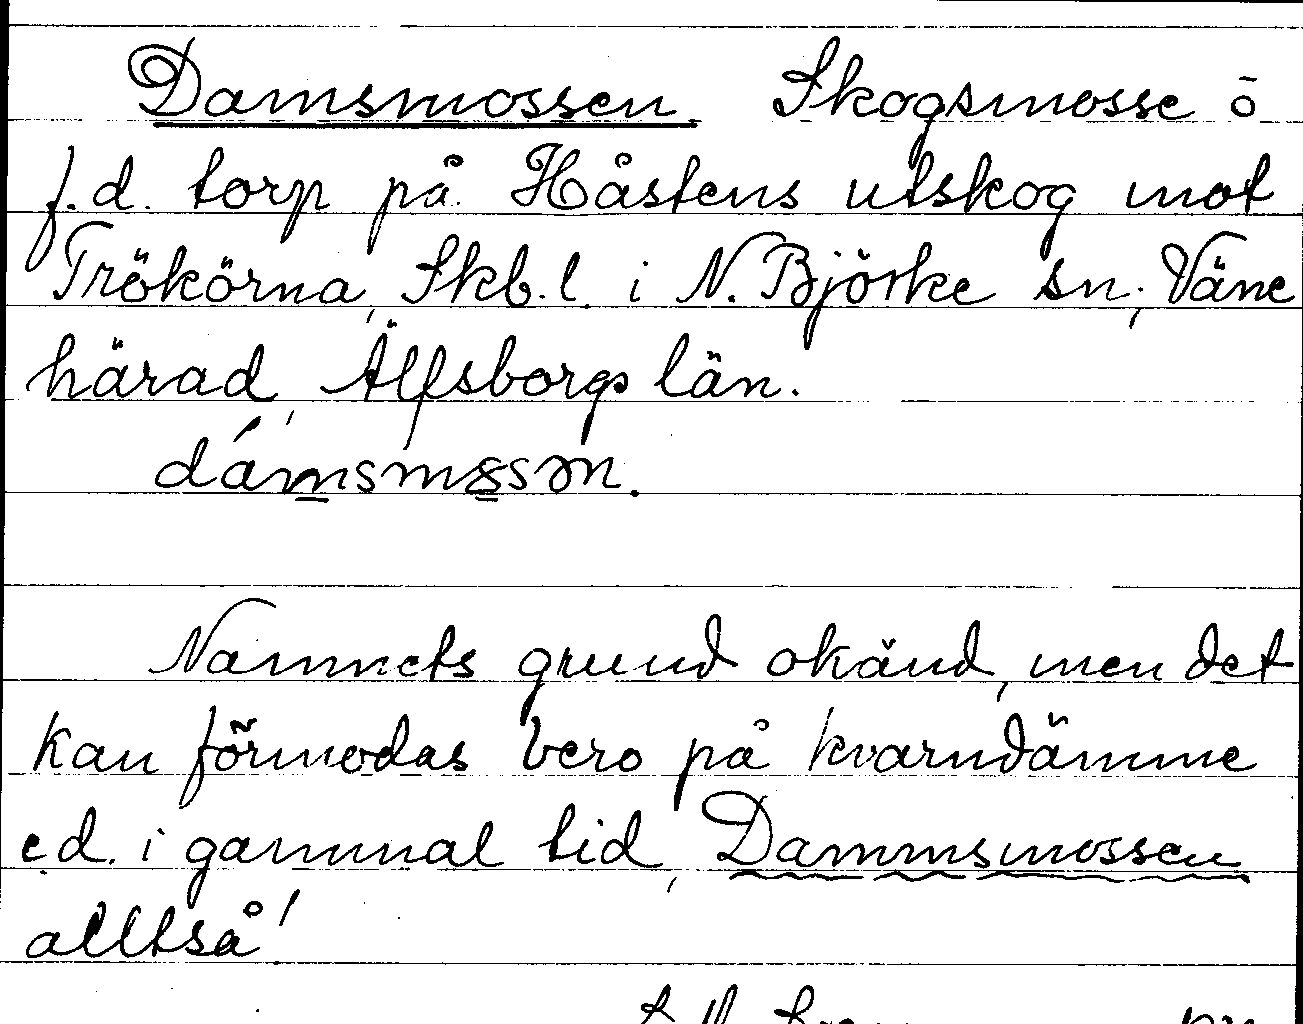 Damsmossen Skogsmosse ö
f.d. torp på Håstens utskog mot
Trökörna, Skb.l. i N. Björke sn, Väne
härad, Älfsborgs län.
dámsmssən.
Namnets grund okänd, men det
kan förmodas bero på kvarndämme
e.d. i gammal tid, Dammsmossen
alltså!